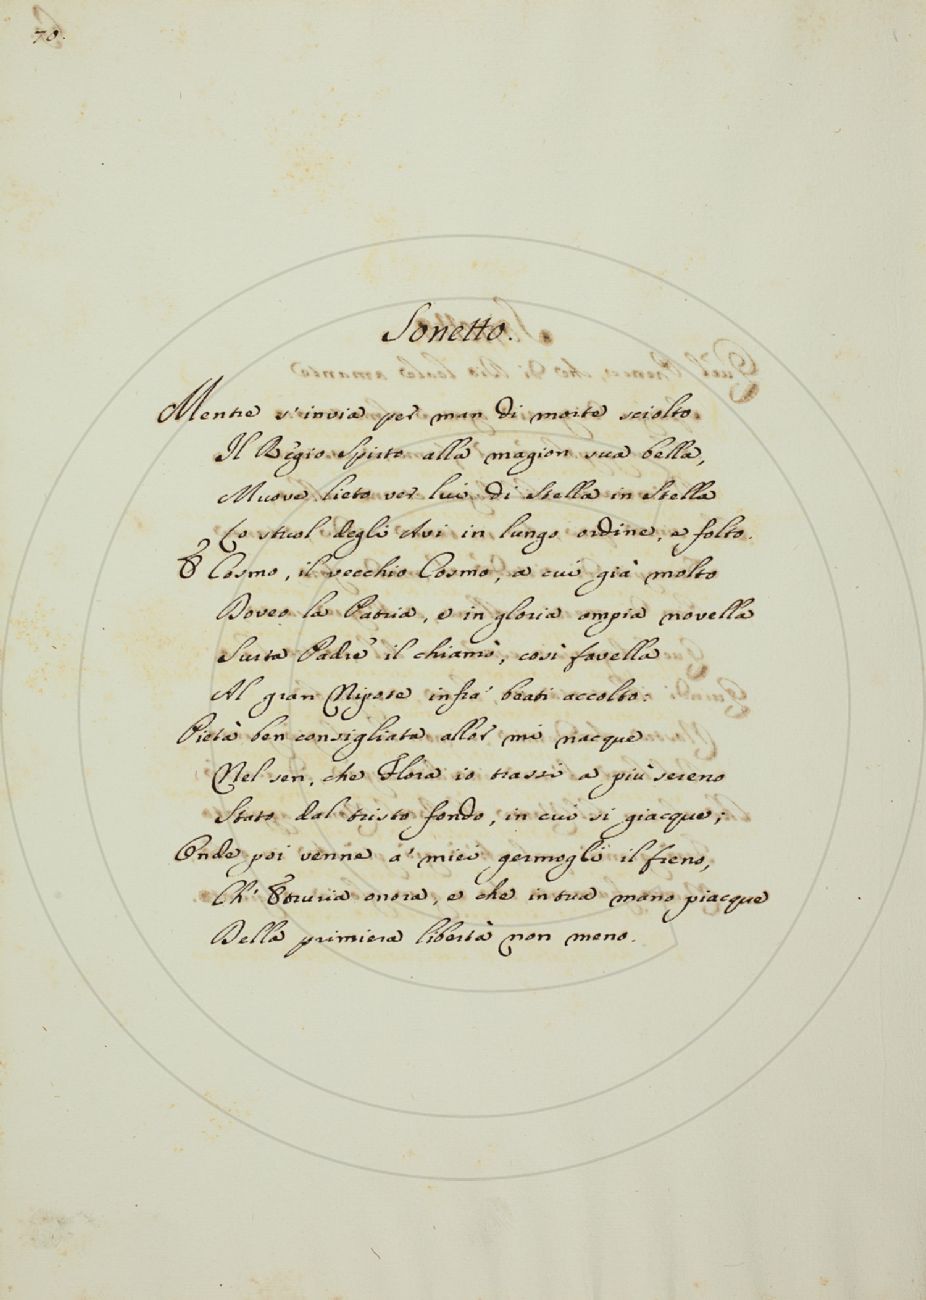 70.
Sonetto.
Mentre s'invia per man di morte sciolto
Il Regio Spirto alla magion sua bella,
Muove lieto ver lui di Stella in Stella
Lo stuol degli Avi in lungo ordine, e folto.
E Cosmo, il vecchio Cosmo, a cui già molto
Doveo la Patria, e in gloria ampia novella
Surta Padre il chiamò, così favella
Al gran Nipote infra' beati accolto:
Pietà ben consigliata allor mi nacque
Nel sen, che Flora io trassi a più sereno
Stato dal tristo fondo, in cui si giacque;
Onde poi venne a' miei germogli il freno,
Ch' Etruria onora, e che in tua mano piacque
Della primiera libertà non meno.